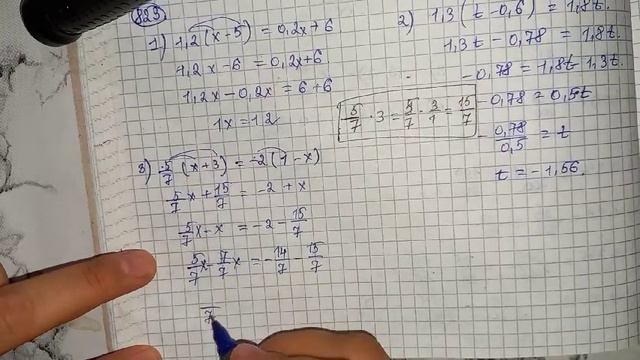 829
1) 1,2(x-5) = 0,2x+6
1,2x-6 = 0,2x+6
1,2x-0,2x = 6+6
1x=12
2) 1,3(t-0,6) = 1,8t.
1,3t - 0,78 = 1,8t.
-0,78 = 1,8t-1,3t.
-0,78 = 0,5t
- 0,78/0,5 = t
t = -1,56.
5/7 · 3 = 5/7 · 3/1 = 15/7
3) 5/7 (x+3) = -2(1-x)
5/7 x + 15/7 = -2 + x
5/7 x - x = -2 - 15/7
5/7 x - 7/7 x = -14/7 - 15/7
7